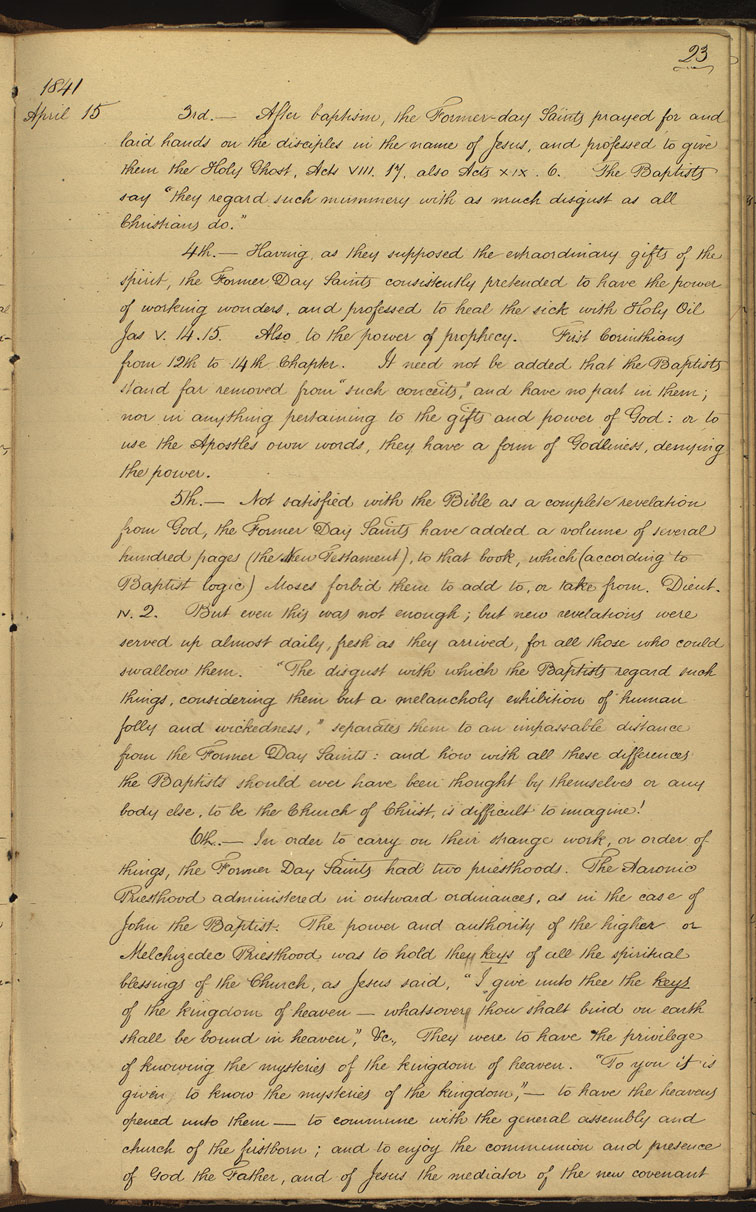 23
1841
April 15 3rd.— After baptism, the Former-day Saints prayed for and
laid hands on the disciples in the name of Jesus, and professed to give
them the Holy Ghost, Acts VIII. 17, also Acts XIX. 6. The Baptists
say "they regard such mummery with as much disgust as all
Christians do."
4th.— Having, as they supposed the extraordinary gifts of the
spirit, the Former Day Saints consistently pretended to have the power
of working wonders, and professed to heal the sick with Holy Oil
Jas V. 14.15. Also, to the power of prophecy. First Corinthians
from 12th to 14th Chapter. It need not be added that the Baptists
stand far removed from "such conceits," and have no part in them;
nor in anything pertaining to the gifts and power of God: or to
use the Apostle's own words, they have a form of Godliness, denying
the power.
5th.— Not satisfied with the Bible as a complete revelation
from God, the Former Day Saints have added a volume of several
hundred pages (the New Testament), to that book, which (according to
Baptist logic) Moses forbid them to add to, or take from. Dieut.
IV. 2. But even this was not enough; but new revelations were
served up almost daily, fresh as they arrived, for all those who could
swallow them. "The disgust with which the Baptists regard such
things, considering them but a melancholy exhibition of human
folly and wickedness," separates them to an impassable distance
from the Former Day Saints: and how with all these differences
the Baptists should ever have been thought by themselves or any
body else, to be the Church of Christ, is difficult to imagine!
6th.— In order to carry on their strange work, or order of
things, the Former Day Saints had two priesthoods. The Aaronic
Priesthood administered in outward ordinances, as in the case of
John the Baptist. The power and authority of the higher or
Melchizedec Priesthood was to hold the keys of all the spiritual
blessings of the Church, as Jesus said, "I give unto thee the keys
of the kingdom of heaven — whatsoever thou shalt bind on earth
shall be bound in heaven", &c., They were to have the privilege
of knowing the mysteries of the kingdom of heaven. "To you it is
given, to know the mysteries of the kingdom," — to have the heavens
opened unto them — to commune with the general assembly and
church of the firstborn; and to enjoy the communion and presence
of God the Father, and of Jesus the mediator of the new covenant